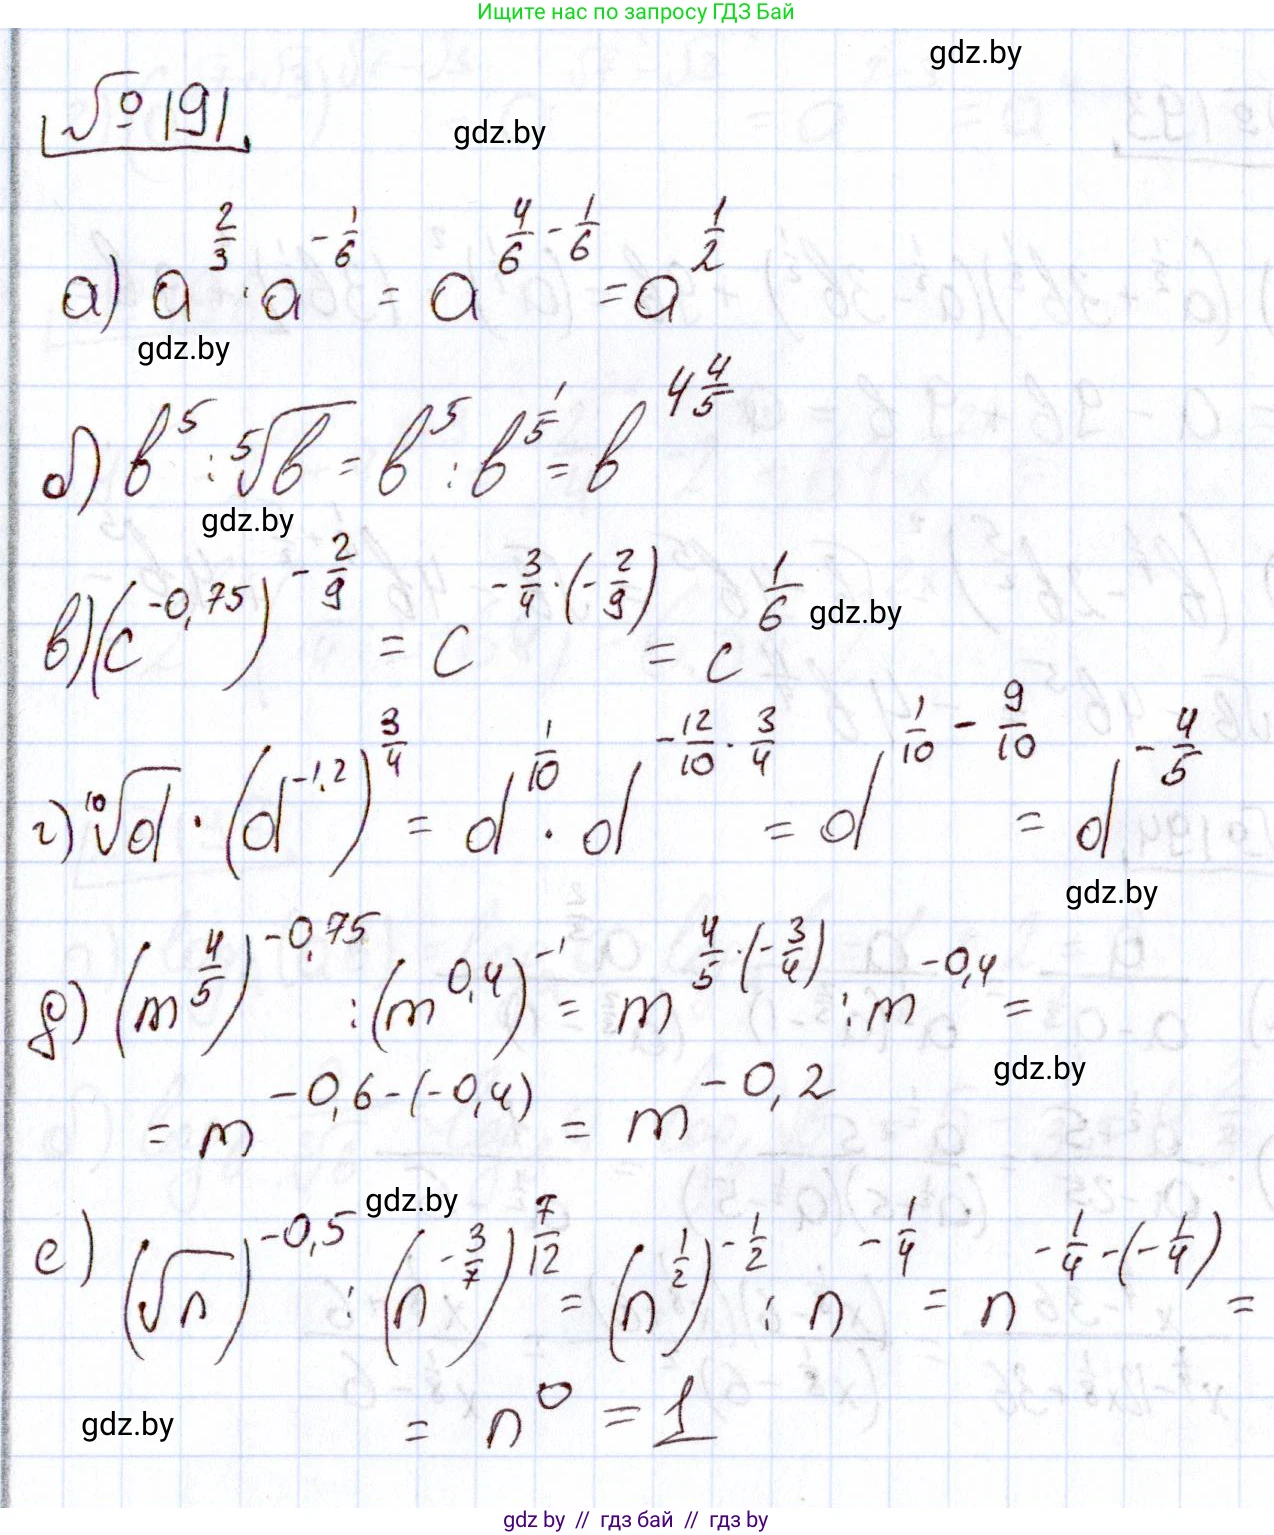 Ищите нас по запросу ГДЗ Бай
gdz.by
№ 191
gdz.by
а) a^{2/3} · a^{-1/6} = a^{4/6 - 1/6} = a^{1/2}
gdz.by
б) b^5 : ⁵√b = b^5 : b^{1/5} = b^{4 4/5}
gdz.by
в) (c^{-0,75})^{-2/9} = c^{-3/4·(-2/9)} = c^{1/6}
gdz.by
г) ¹⁰√d · (d^{-1,2})^{3/4} = d^{1/10} · d^{-12/10 · 3/4} = d^{1/10 - 9/10} = d^{-4/5}
gdz.by
д) (m^{4/5})^{-0,75} : (m^{0,4})^{-1} = m^{4/5·(-3/4)} : m^{-0,4} =
gdz.by
= m^{-0,6-(-0,4)} = m^{-0,2}
gdz.by
е) (√n)^{-0,5} : (n^{-3/7})^{7/12} = (n^{1/2})^{-1/2} : n^{-1/4} = n^{-1/4-(-1/4)} =
= n^0 = 1
gdz.by
gdz by // гдз бай // гдз by